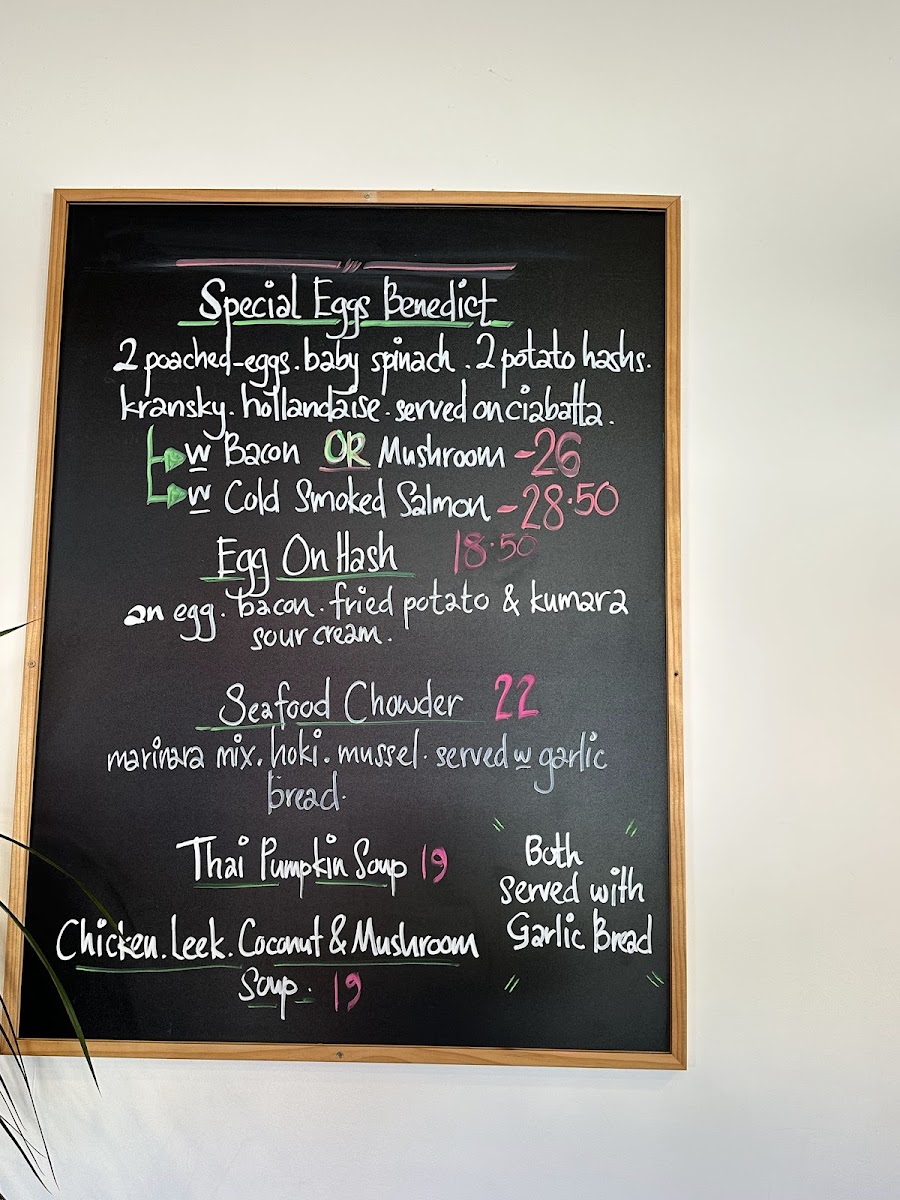 Special Eggs Benedict
2 poached-eggs. baby spinach. 2 potato hashs.
kransky. hollandaise. served on ciabatta.
w Bacon OR Mushroom -26
w Cold Smoked Salmon -28.50
Egg On Hash 18.50
an egg. bacon. fried potato & kumara
sour cream.
Seafood Chowder 22
marinara mix. hoki. mussel. served w garlic
bread.
Thai Pumpkin Soup 19
Chicken. Leek. Coconut & Mushroom
Soup. 19
Both
served with
Garlic Bread